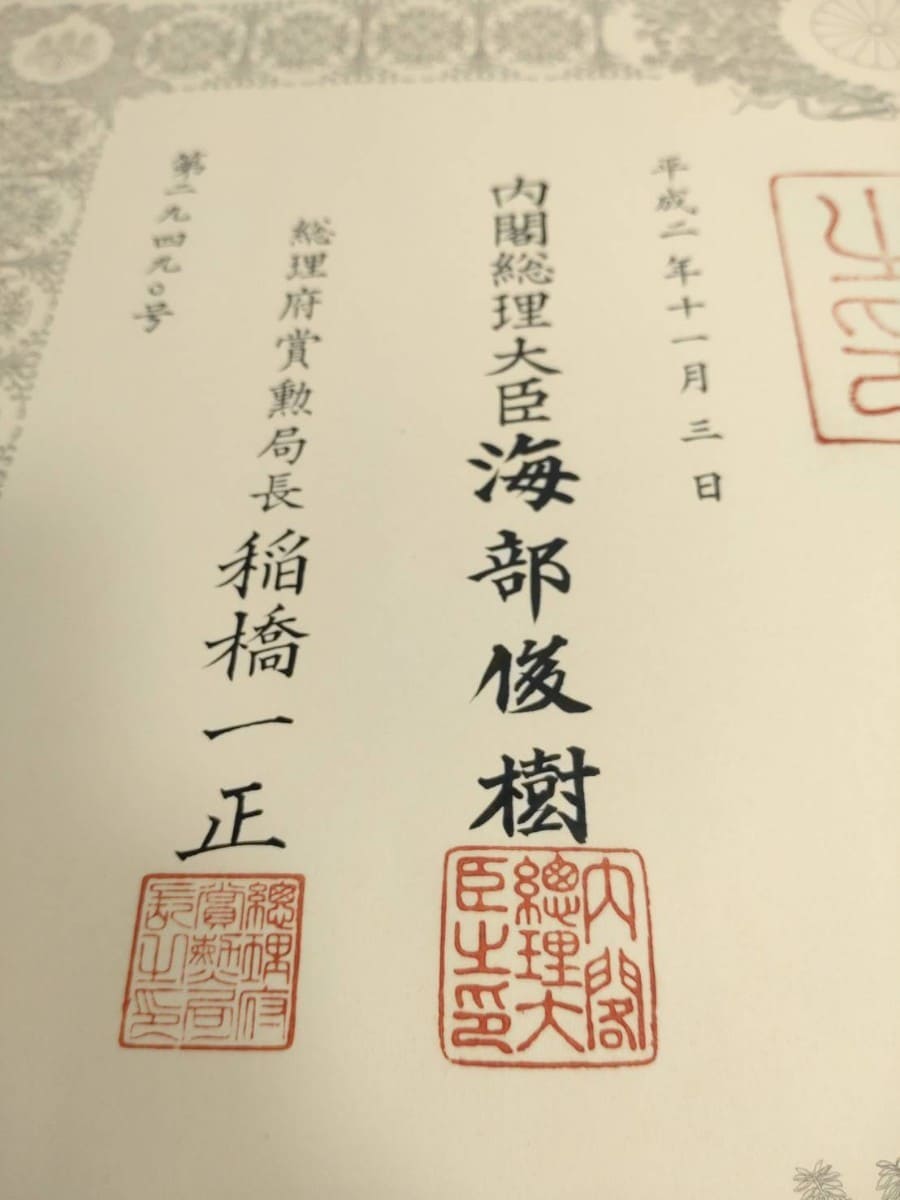 平成二年十一月三日
内閣総理大臣海部俊樹
内閣總理大臣之印
総理府賞勲局長稲橋一正
總理府賞勲局長之印
第二九四九〇号